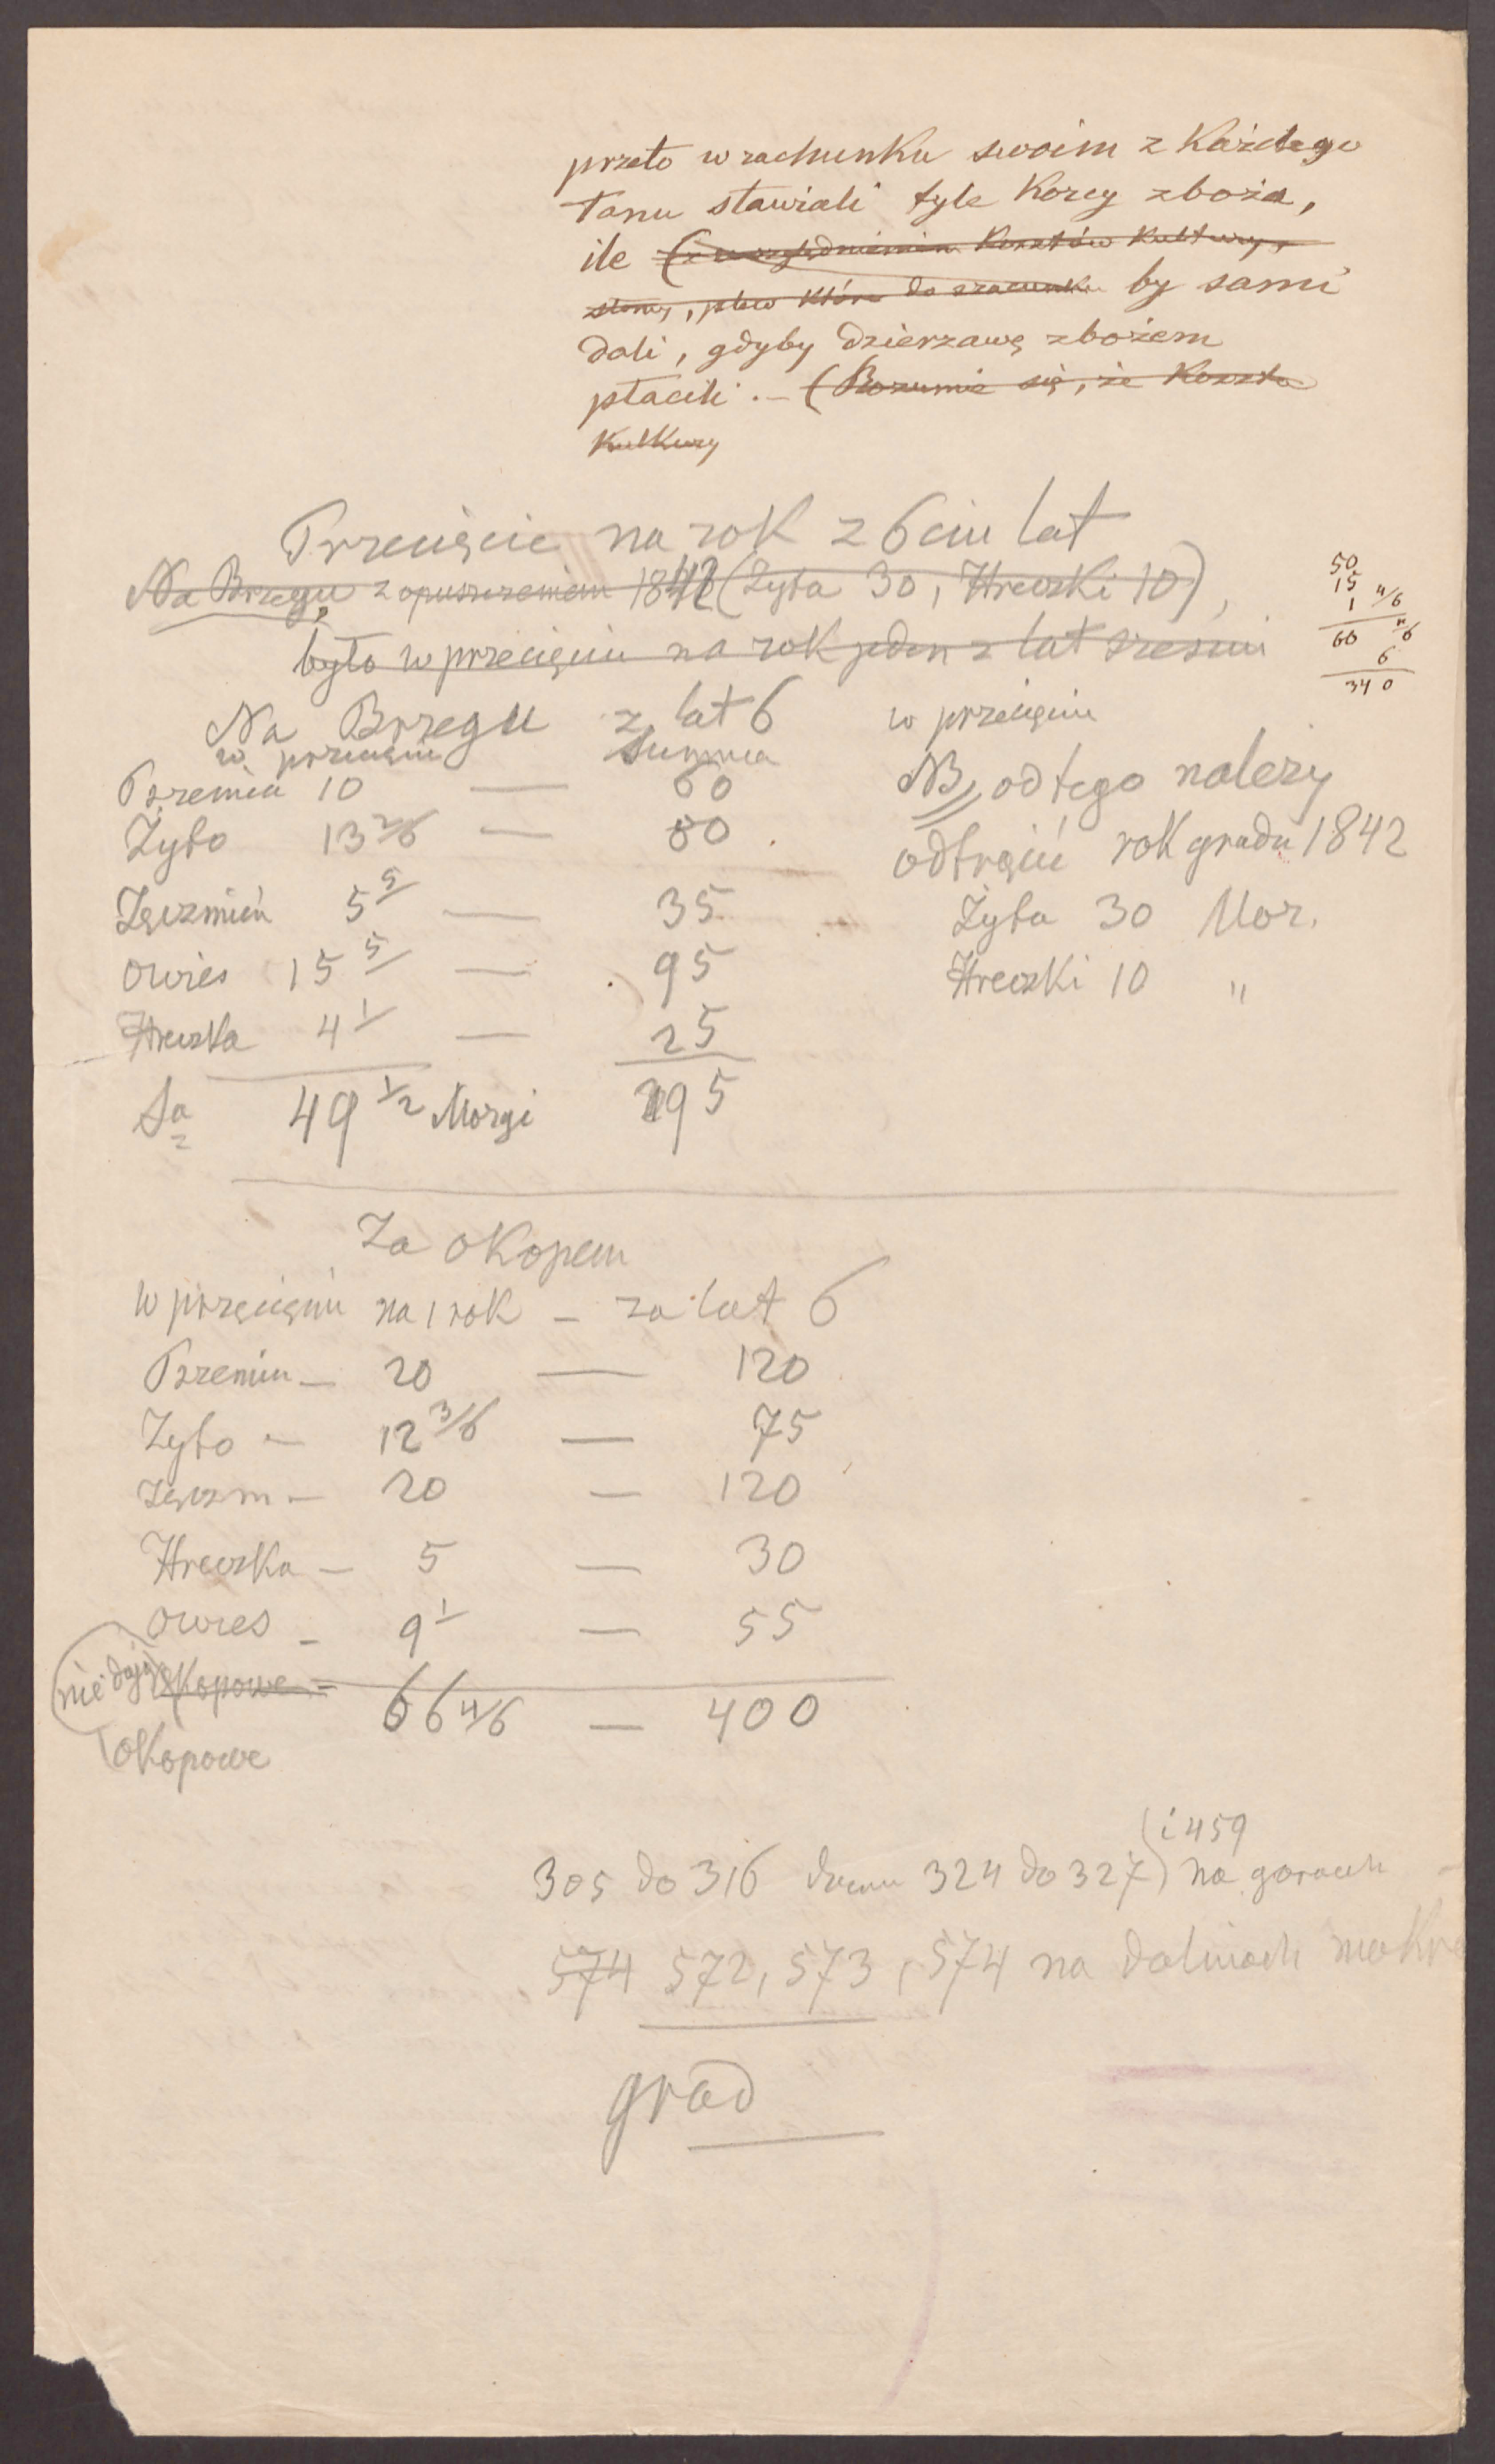 przeto w rachunku swoim z Każdego
Łanu stawiali tyle Korcy zboża,
ile (z uwzględnieniem Kosztów Kultury,
słomy, plew które do szacunku by sami
dali, gdyby dzierzawę zbożem
płacili. – (Rozumie się, że Koszta
Kultury
Przecięcie na rok z 6ciu lat
Na Brzegu z opuszczeniem 1842 (Żyta 30, Hreczki 10),
było w przecięciu na rok jeden z lat sześciu
50
15
1 4/6
66 4/6
6
340
Na Brzegu z lat 6 w przecięciu
w przecięciu Summa
Pszenicu 10 — 60
Żyto 13 2/6 — 80
Jęczmień 5 5/ — 35
Owies 15 5/ — 95
Hreczka 4 1/ — 25
Sa 49 1/2 Morgi 295
NB od tego należy
odtrącić rok gradu 1842
Żyta 30 Mor.
Hreczki 10 "
Za okopem
w przecięciu na 1 rok – za lat 6
Pszenicu – 20 — 120
Żyto – 12 3/6 — 75
Jęczm – 20 — 120
Hreczka – 5 — 30
Owies – 9 1/ — 55
nie dają okopowe – 66 4/6 — 400
okopowe
(i 459
305 do 316 324 do 327) na gorach
574 572, 573, 574 na dolinach mokre
grad